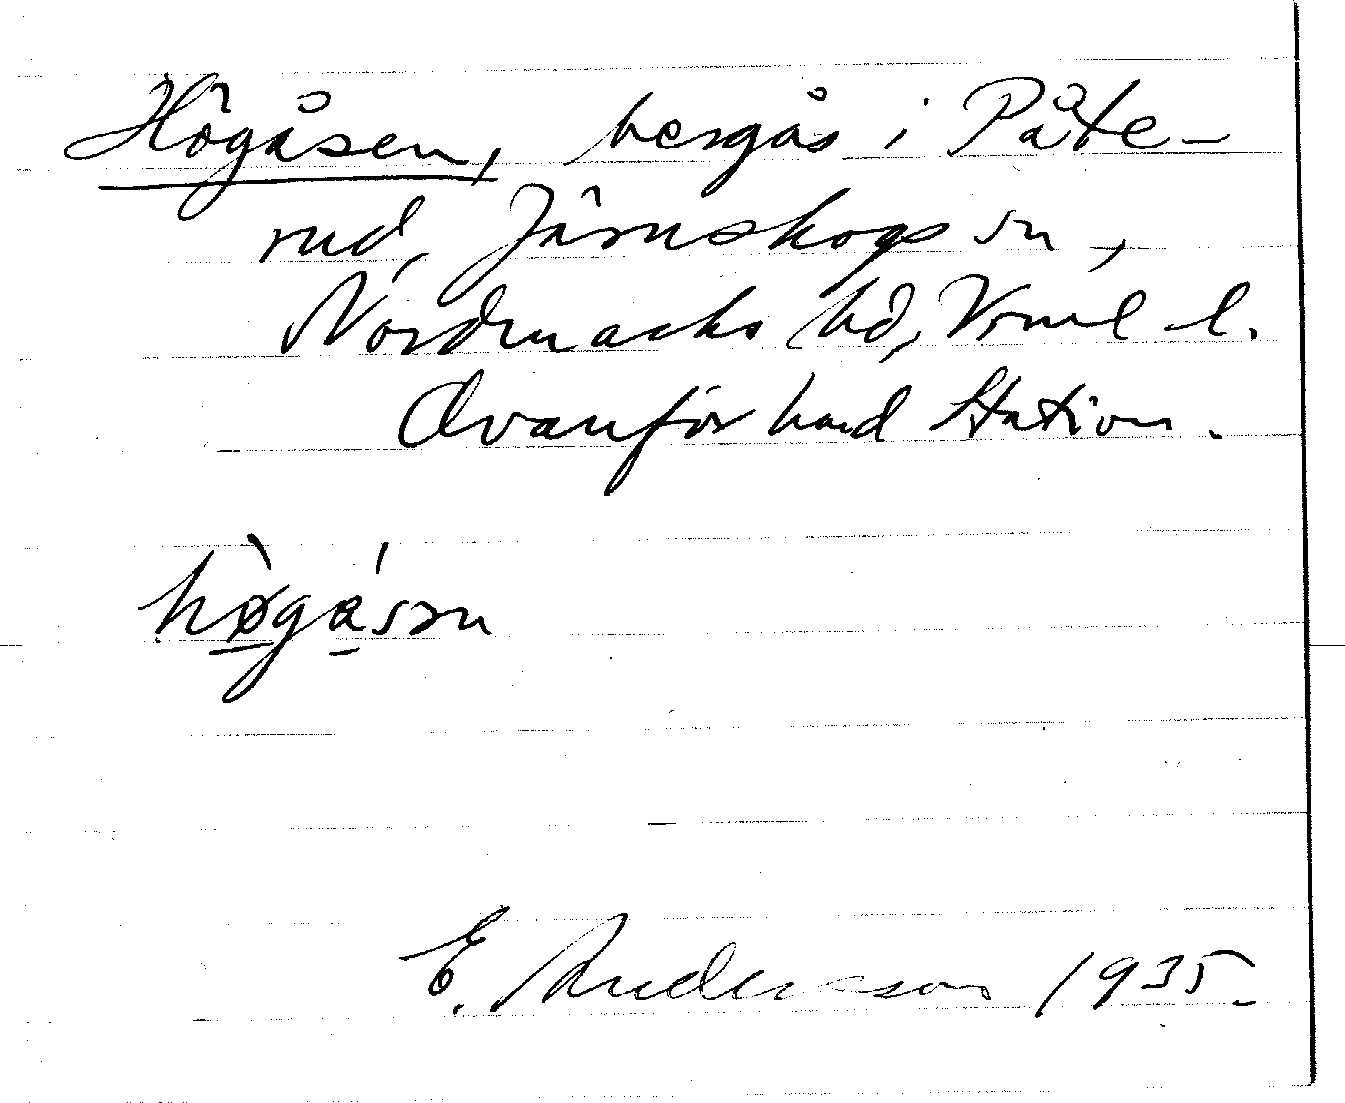 Högåsen, bergås i Påte-
rud, Järnskogs sn,
Nordmarks hd, Vrml l.
Ovanför hand Station.
høgåsən
E. Andersson 1935.